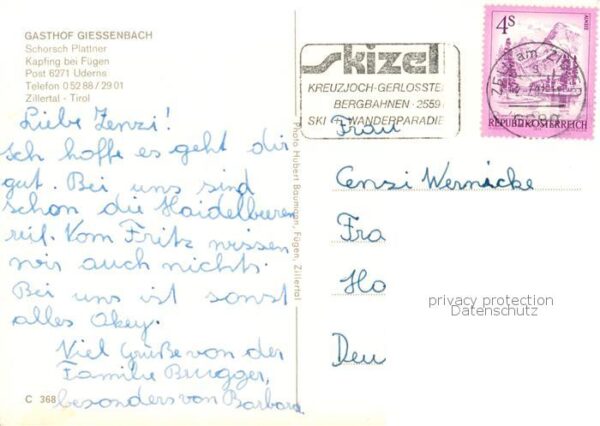 GASTHOF GIESSENBACH
Schorsch Plattner
Kapfing bei Fügen
Post 6271 Uderns
Telefon 05288/2901
Zillertal - Tirol
Liebe Zenzi!
Ich hoffe es geht dir
gut. Bei uns sind
schon die Haidelbeeren
reif. Vom Fritz wissen
wir auch nichts.
Bei uns ist sonst
alles Okey.
Viel Grüße von der
Familie Brugger,
besonders von Barbara
C 368
Photo Hubert Baumann, Fügen, Zillertal
skizel
KREUZJOCH-GERLOSSTE
BERGBAHNEN · 2559
SKI WANDERPARADIE
4S
REPUBLIK ÖSTERREICH
ZELL am ZI
6280
Frau
Cenzi Wernicke
Fra
Ho
privacy protection
Datenschutz
Deu